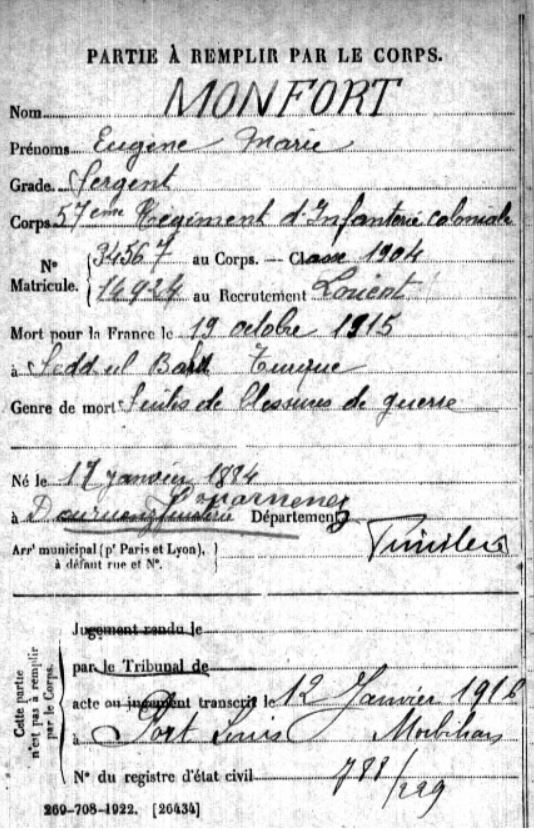 PARTIE À REMPLIR PAR LE CORPS.
Nom MONFORT
Prénoms Eugène Marie
Grade Sergent
Corps 57ème Régiment d'Infanterie coloniale
N° Matricule. 34567 au Corps. — Classe 1904
16924 au Recrutement Lorient
Mort pour la France le 19 octobre 1915
à Sedd ul Bahr Turquie
Genre de mort Suites de blessures de guerre
Né le 17 janvier 1884
à Douarnenez Département Finistère
Arrt municipal (pr Paris et Lyon),
à défaut rue et N°.
Jugement rendu le
par le Tribunal de
acte ou jugement transcrit le 12 Janvier 1916
à Port Louis Morbihan
N° du registre d'état civil 788/229
Cette partie
n'est pas à remplir
par le Corps.
269-708-1922. [26434]